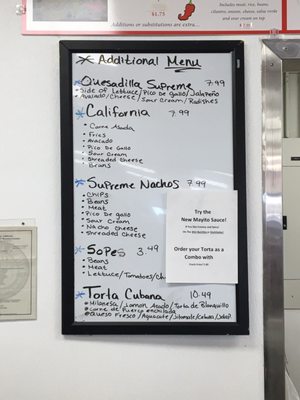 $1.75
Additions or substitutions are extra...
Includes meat, rice, beans,
cilantro, onions, cheese, salsa verde
and sour cream on top
Additional Menu
Quesadilla Supreme 7.99
Side of Lettuce/Pico De Gallo/Jalapeño
Avacado/Cheese/Sour Cream/Radishes
California 7.99
Carne Asada
Fries
Avocado
Pico De Gallo
Sour Cream
Shreaded Cheese
Beans
Supreme Nachos 7.99
Chips
Beans
Meat
Pico De gallo
Sour Cream
Nacho Cheese
Shreaded Cheese
Try the
New Mayito Sauce!
Order your Torta as a
Combo with
Sopes 3.49
Beans
Meat
Lettuce/Tomatoes/Ch
Torta Cubana 10.49
Milanesa/Jamon Asado/Torta de Blanquillo
Carne de Puerco enchilada
Queso Fresco/Aguacate/Jitomate/Cebolla/Jalap